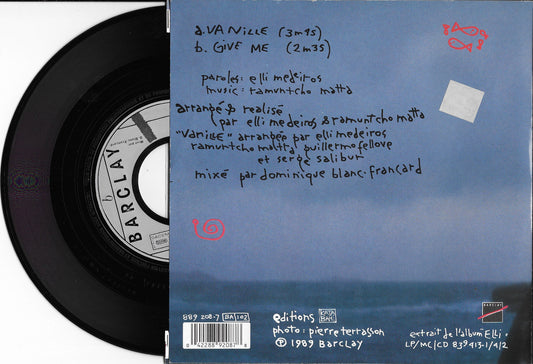 a. VANILLE (3m45)
b. GIVE ME (2m35)
paroles: elli medeiros
music: ramuntcho matta
arrangé & realisé
par elli medeiros & ramuntcho matta
"VaniLLE" arrangée par elli medeiros
ramuntcho matta guillermo fellove
et serge salibur
mixé par dominique blanc.francard
BARCLAY
b
889 208-7
BA 102
0 42288 92087 8
editions
photo: pierre terrasson
℗ 1989 Barclay
BARCLAY
extrait de l'album "Elli"
LP/MC/CD 839413-1/4/2